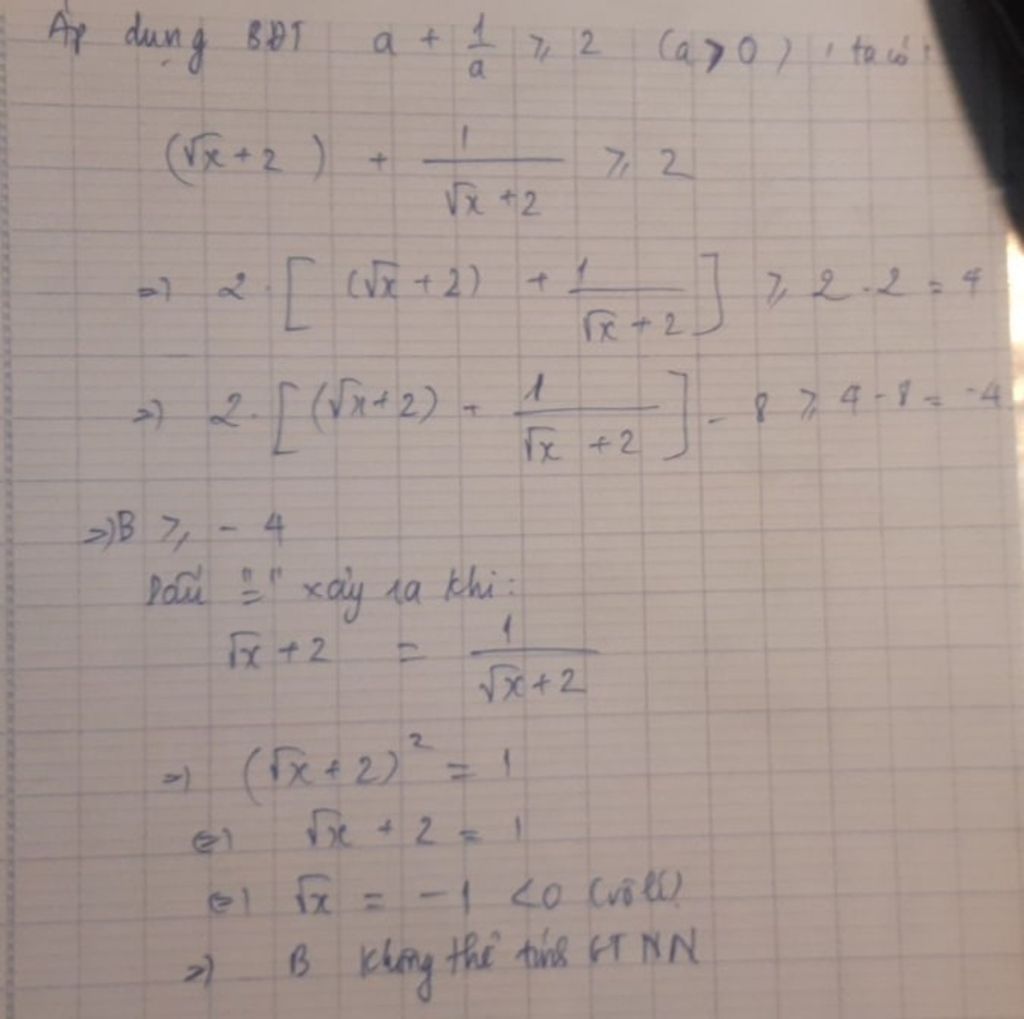 Áp dụng BĐT a + 1/a ≥ 2 (a > 0), ta có:
(√x + 2) + 1/(√x + 2) ≥ 2
=> 2 · [(√x + 2) + 1/(√x + 2)] ≥ 2 · 2 = 4
=> 2 · [(√x + 2) + 1/(√x + 2)] - 8 ≥ 4 - 8 = -4
=> B ≥ - 4
Dấu "=" xảy ra khi:
√x + 2 = 1/(√x + 2)
=> (√x + 2)² = 1
<=> √x + 2 = 1
<=> √x = - 1 < 0 (vô lí)
=> B không thể tính GTNN